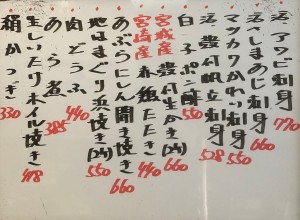 活アワビ刺身 770
活〆しまあじ刺身 660
マツカワかれい刺身 550
活殻付帆立刺身 528
白子ポン酢 550
宮城産 殻付生かき 660
宮崎産 赤鶏たたき 440
あぶらにしん開き焼き 660
地はまぐり浜焼き(2ヶ) 550
肉どうふ 440
あら煮 385
生しいたけホイル焼き 418
絹かつぎ 330